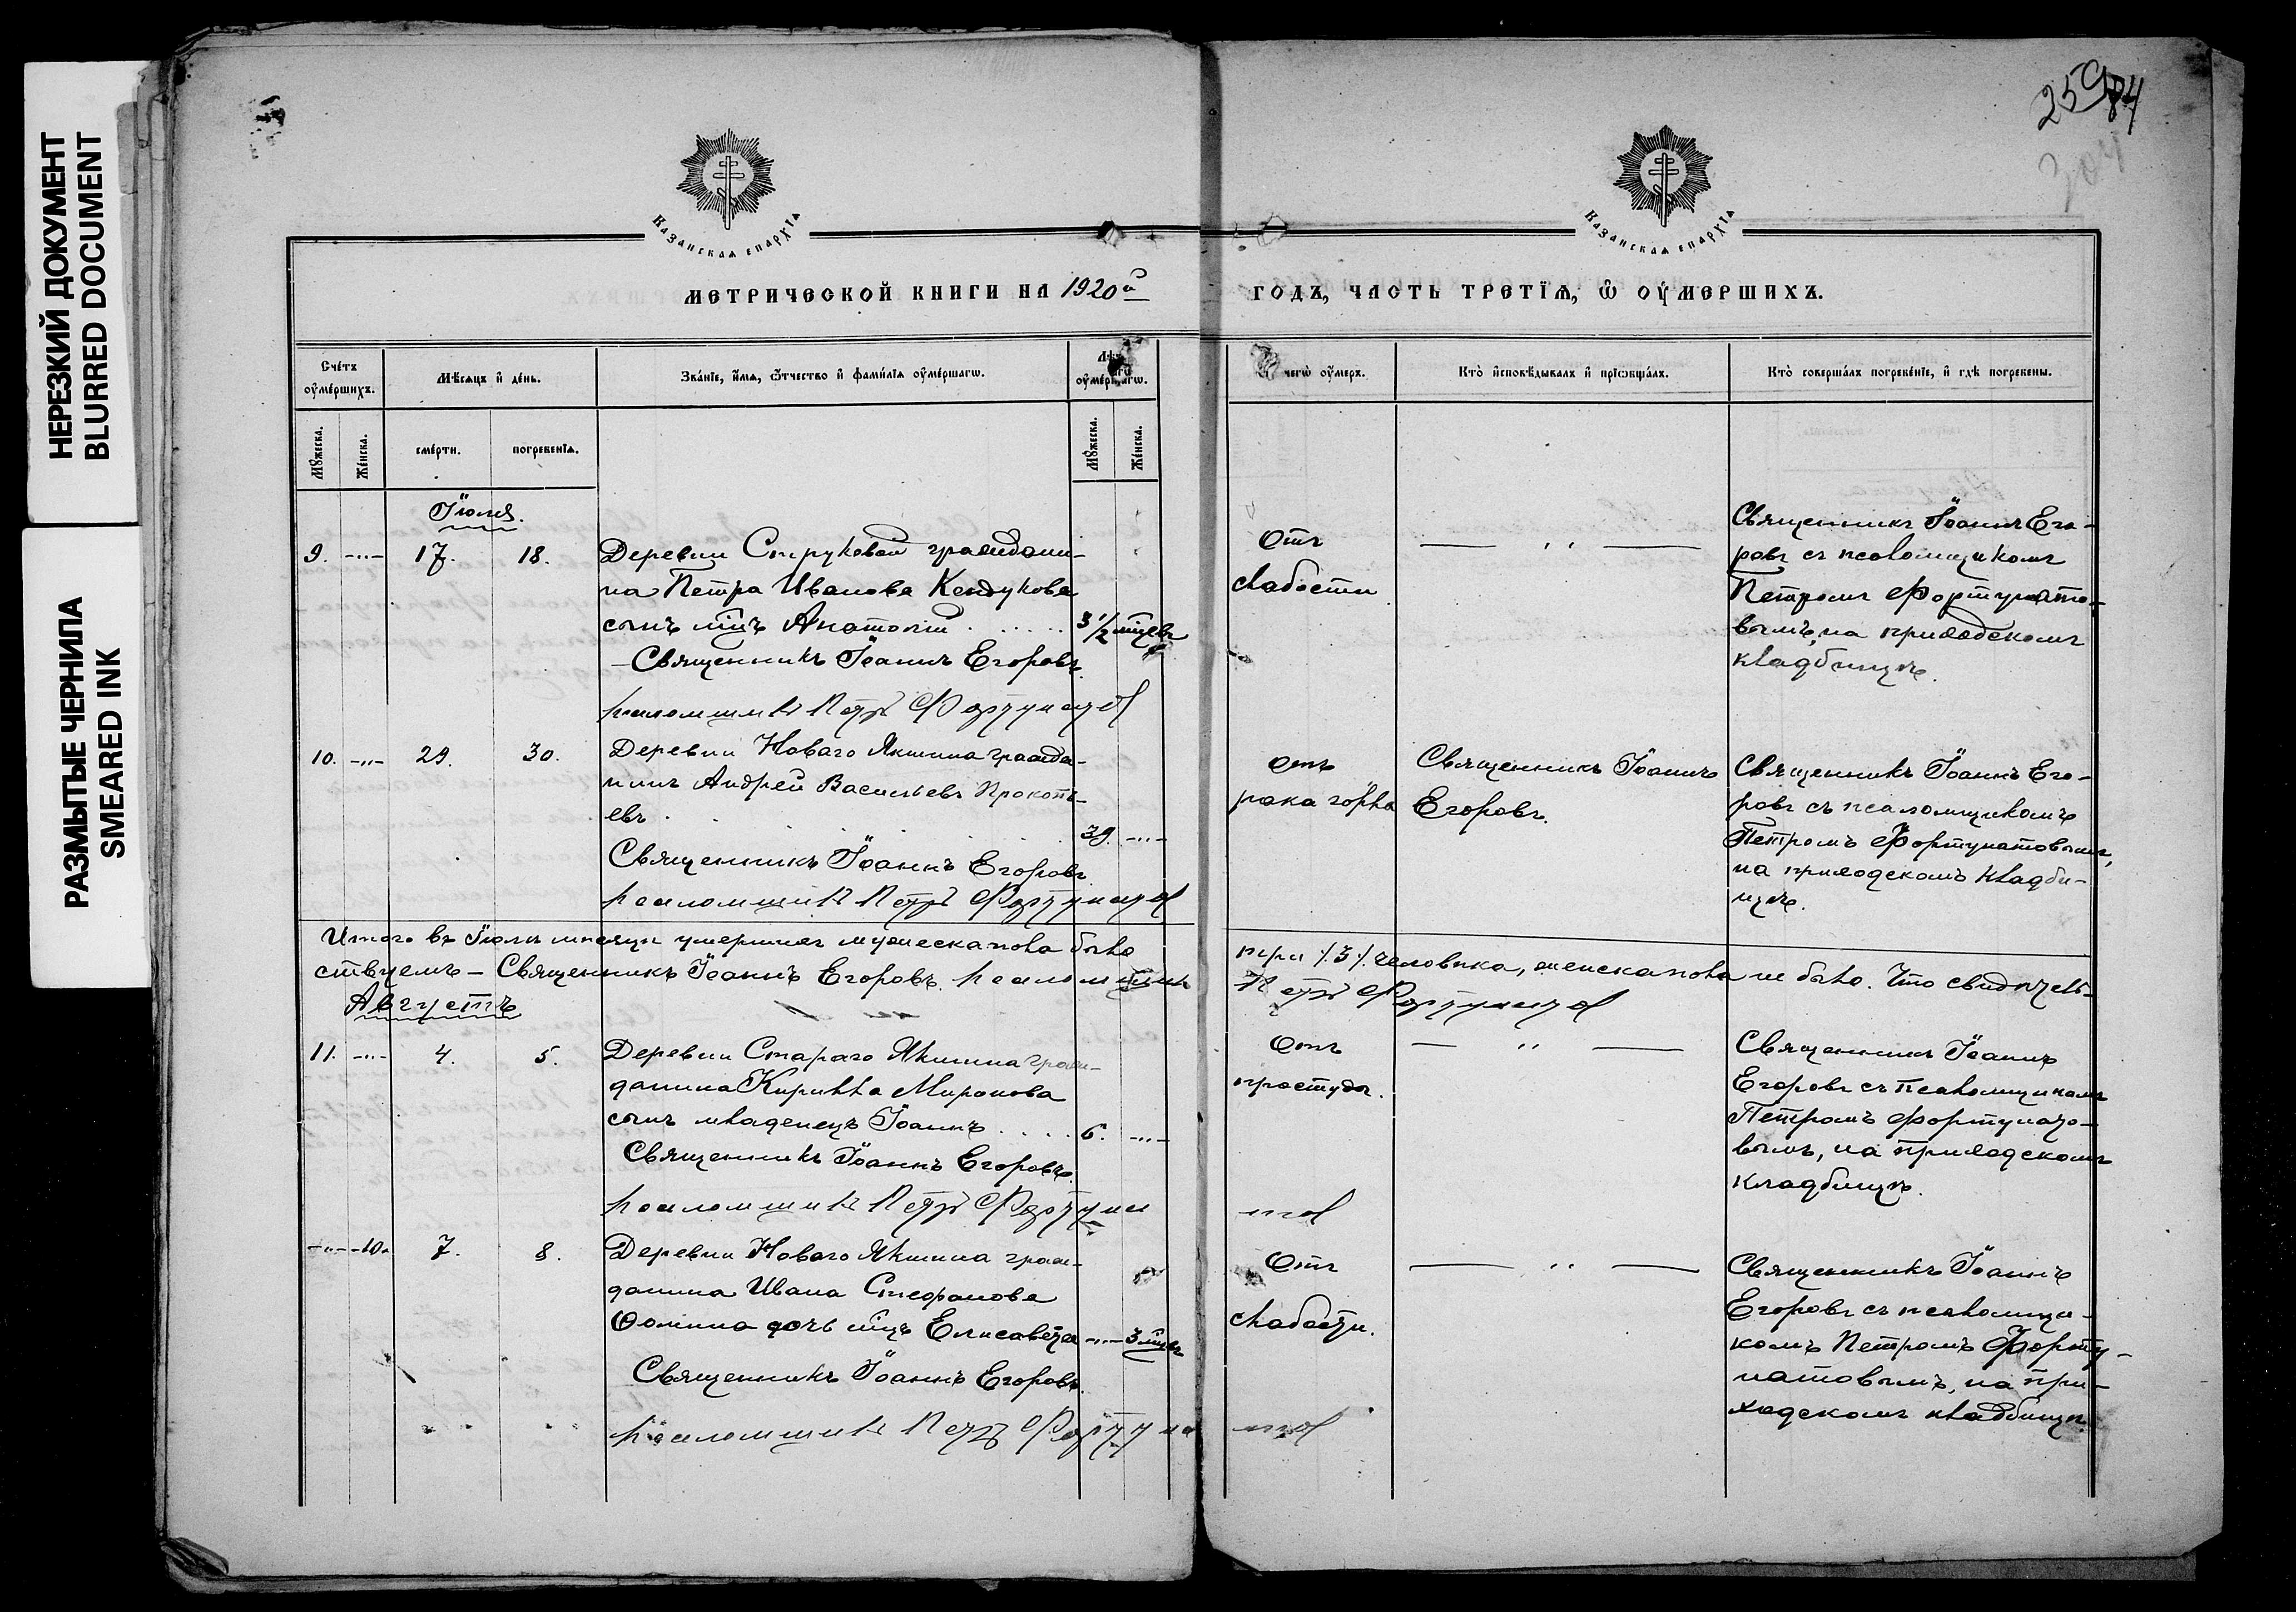 НЕРЕЗКИЙ ДОКУМЕНТ
BLURRED DOCUMENT
РАЗМЫТЫЕ ЧЕРНИЛА
SMEARED INK
259
84
304
Казанская епархїѧ
Казанская епархїѧ
МЕТРИЧЕСКОЙ КНИГИ НА 1920й
ГОДЪ, ЧАСТЬ ТРЕТЇѦ, Ѡ ОУМЕРШИХЪ.
Счетъ оумершихъ.
Мѣсяцъ и день.
Званїе, имѧ, ѿчество и фамилїѧ оумершагѡ.
Лѣта оумершагѡ.
чегѡ оумеръ.
Кто исповѣдывалъ и прїѡбщалъ.
Кто совершалъ погребенїе, и гдѣ погребены.
Мужеска.
Женска.
смерти.
погребенїѧ.
Мужеска.
Женска.
Іюля.
9. -"- 17. 18.
Деревни Струковой граждани-
на Петра Иванова Кендукова
сынъ мцъ Анатолій . . . . . 3 1/2 мцевъ
– Священникъ Іоаннъ Егоровъ.
псаломщикъ Петръ Фортунатов
Отъ
слабости
— " —
Священникъ Іоаннъ Его-
ровъ съ псаломщикомъ
Петромъ Фортунато-
вымъ, на приходскомъ
кладбищѣ.
10. -"- 29. 30.
Деревни Новаго Якшина гражда-
нинъ Андрей Васильевъ Прокопь-
евъ . . . . . 39. -"-
Священникъ Іоаннъ Егоровъ
псаломщикъ Петръ Фортунатов
отъ
рака горла
Священникъ Іоаннъ
Егоровъ.
Священникъ Іоаннъ Его-
ровъ съ псаломщикомъ
Петромъ Фортунатовымъ,
на приходскомъ кладби-
щѣ.
Итого въ Іюлѣ мѣсяцѣ умершихъ мужеска пола было три /3/ человѣка, женска пола не было. Что свидѣтель-
ствуемъ – Священникъ Іоаннъ Егоровъ. псаломщикъ Петръ Фортунатов
Августъ
11. -"- 4. 5.
Деревни Стараго Якшина граж-
данина Кирилла Миронова
сынъ младенецъ Іоаннъ . . . . 6. -"-
Священникъ Іоаннъ Егоровъ.
псаломщикъ Петръ Фортунатов
Отъ
простуды.
— " —
Священникъ Іоаннъ
Егоровъ съ псаломщикомъ
Петромъ Фортунато-
вымъ, на приходскомъ
кладбищѣ.
-"- 10. 7. 8.
Деревни Новаго Якшина граж-
данина Ивана Стефанова
Ѳомина дочь мцъ Елисавета -"- 3 мцевъ
Священникъ Іоаннъ Егоровъ.
псаломщикъ Петръ Фортунатов
Отъ
слабости.
— " —
Священникъ Іоаннъ
Егоровъ съ псаломщи-
комъ Петромъ Форту-
натовымъ, на при-
ходскомъ кладбищѣ.